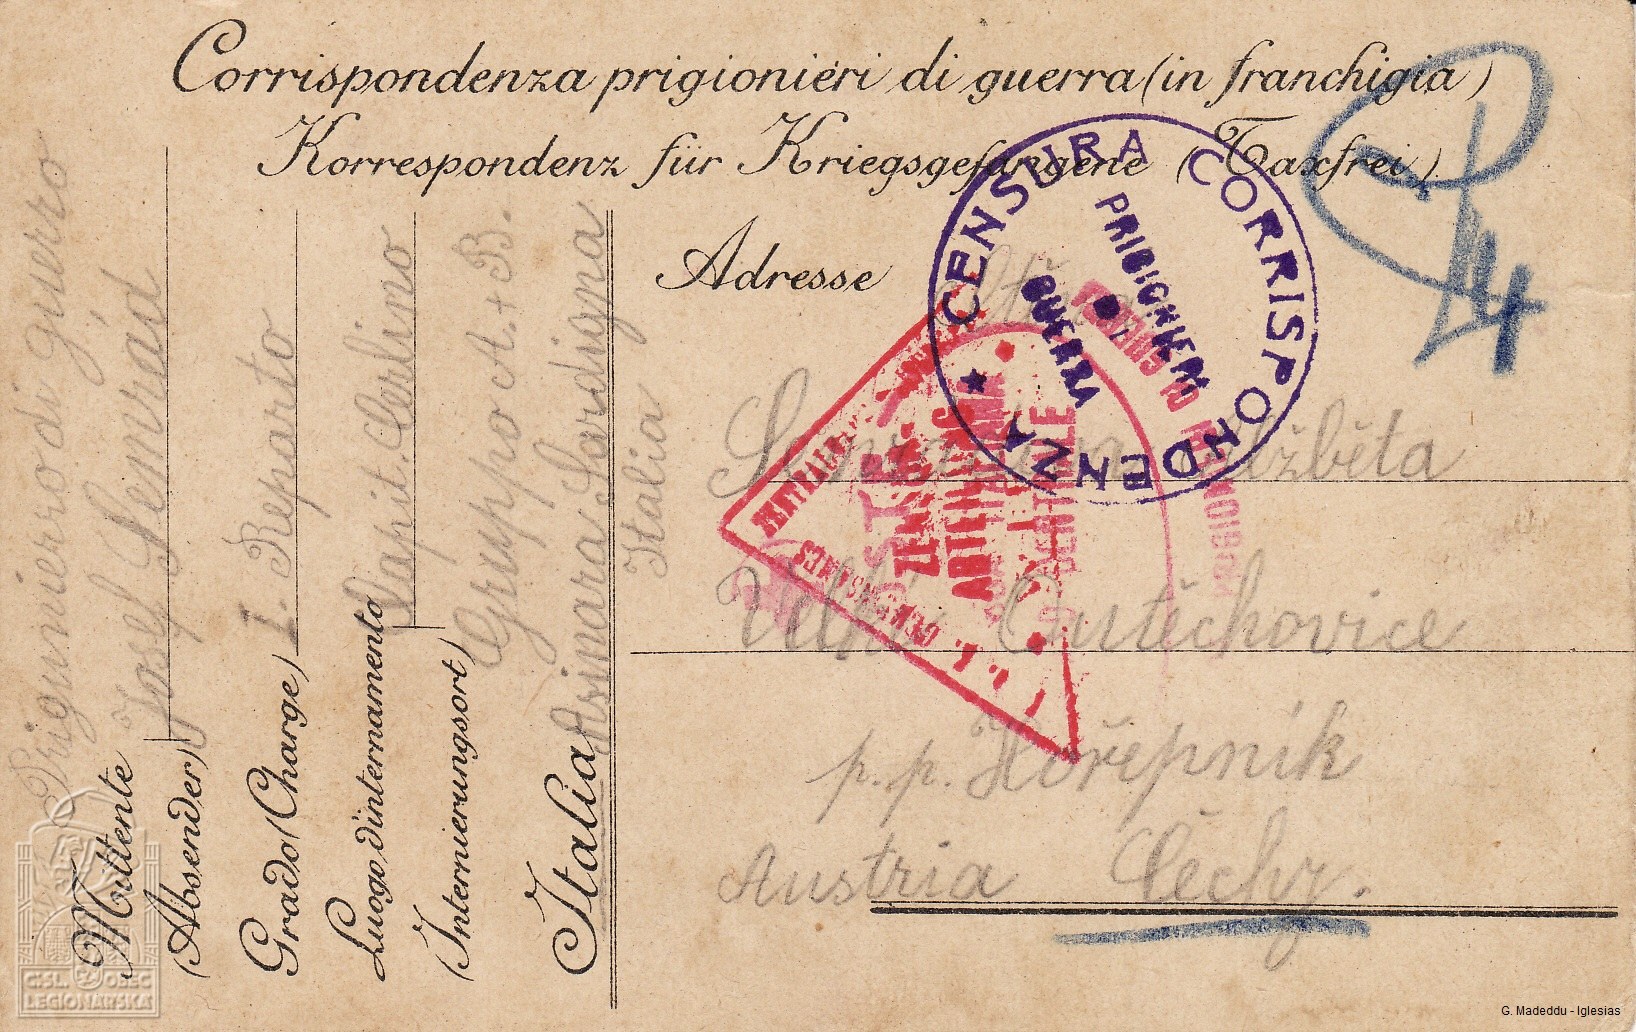 Corrispondenza prigioniéri di guerra (in franchigia)
Korrespondenz für Kriegsgefangene (Taxfrei)
Adresse
Alžběta
Velké Outěchovice
p. p. Hořepník
Austria Čechy.
Mittente Prigunierro di guerro
(Absender) Josef Semrád
Grado (Charge) I. Reparto
Luogo d'internamento Capit. Corlino
(Internierungsort) Gruppo A. + B.
Italia Asinara Sardigna
Italia
CENSURA CORRISPONDENZA
PRIGIONIERI
DI
GUERRA
POSTE
ZENSUR
ABTEILUNG
ČSL. OBEC
LEGIONÁŘSKÁ
G. Madeddu - Iglesias